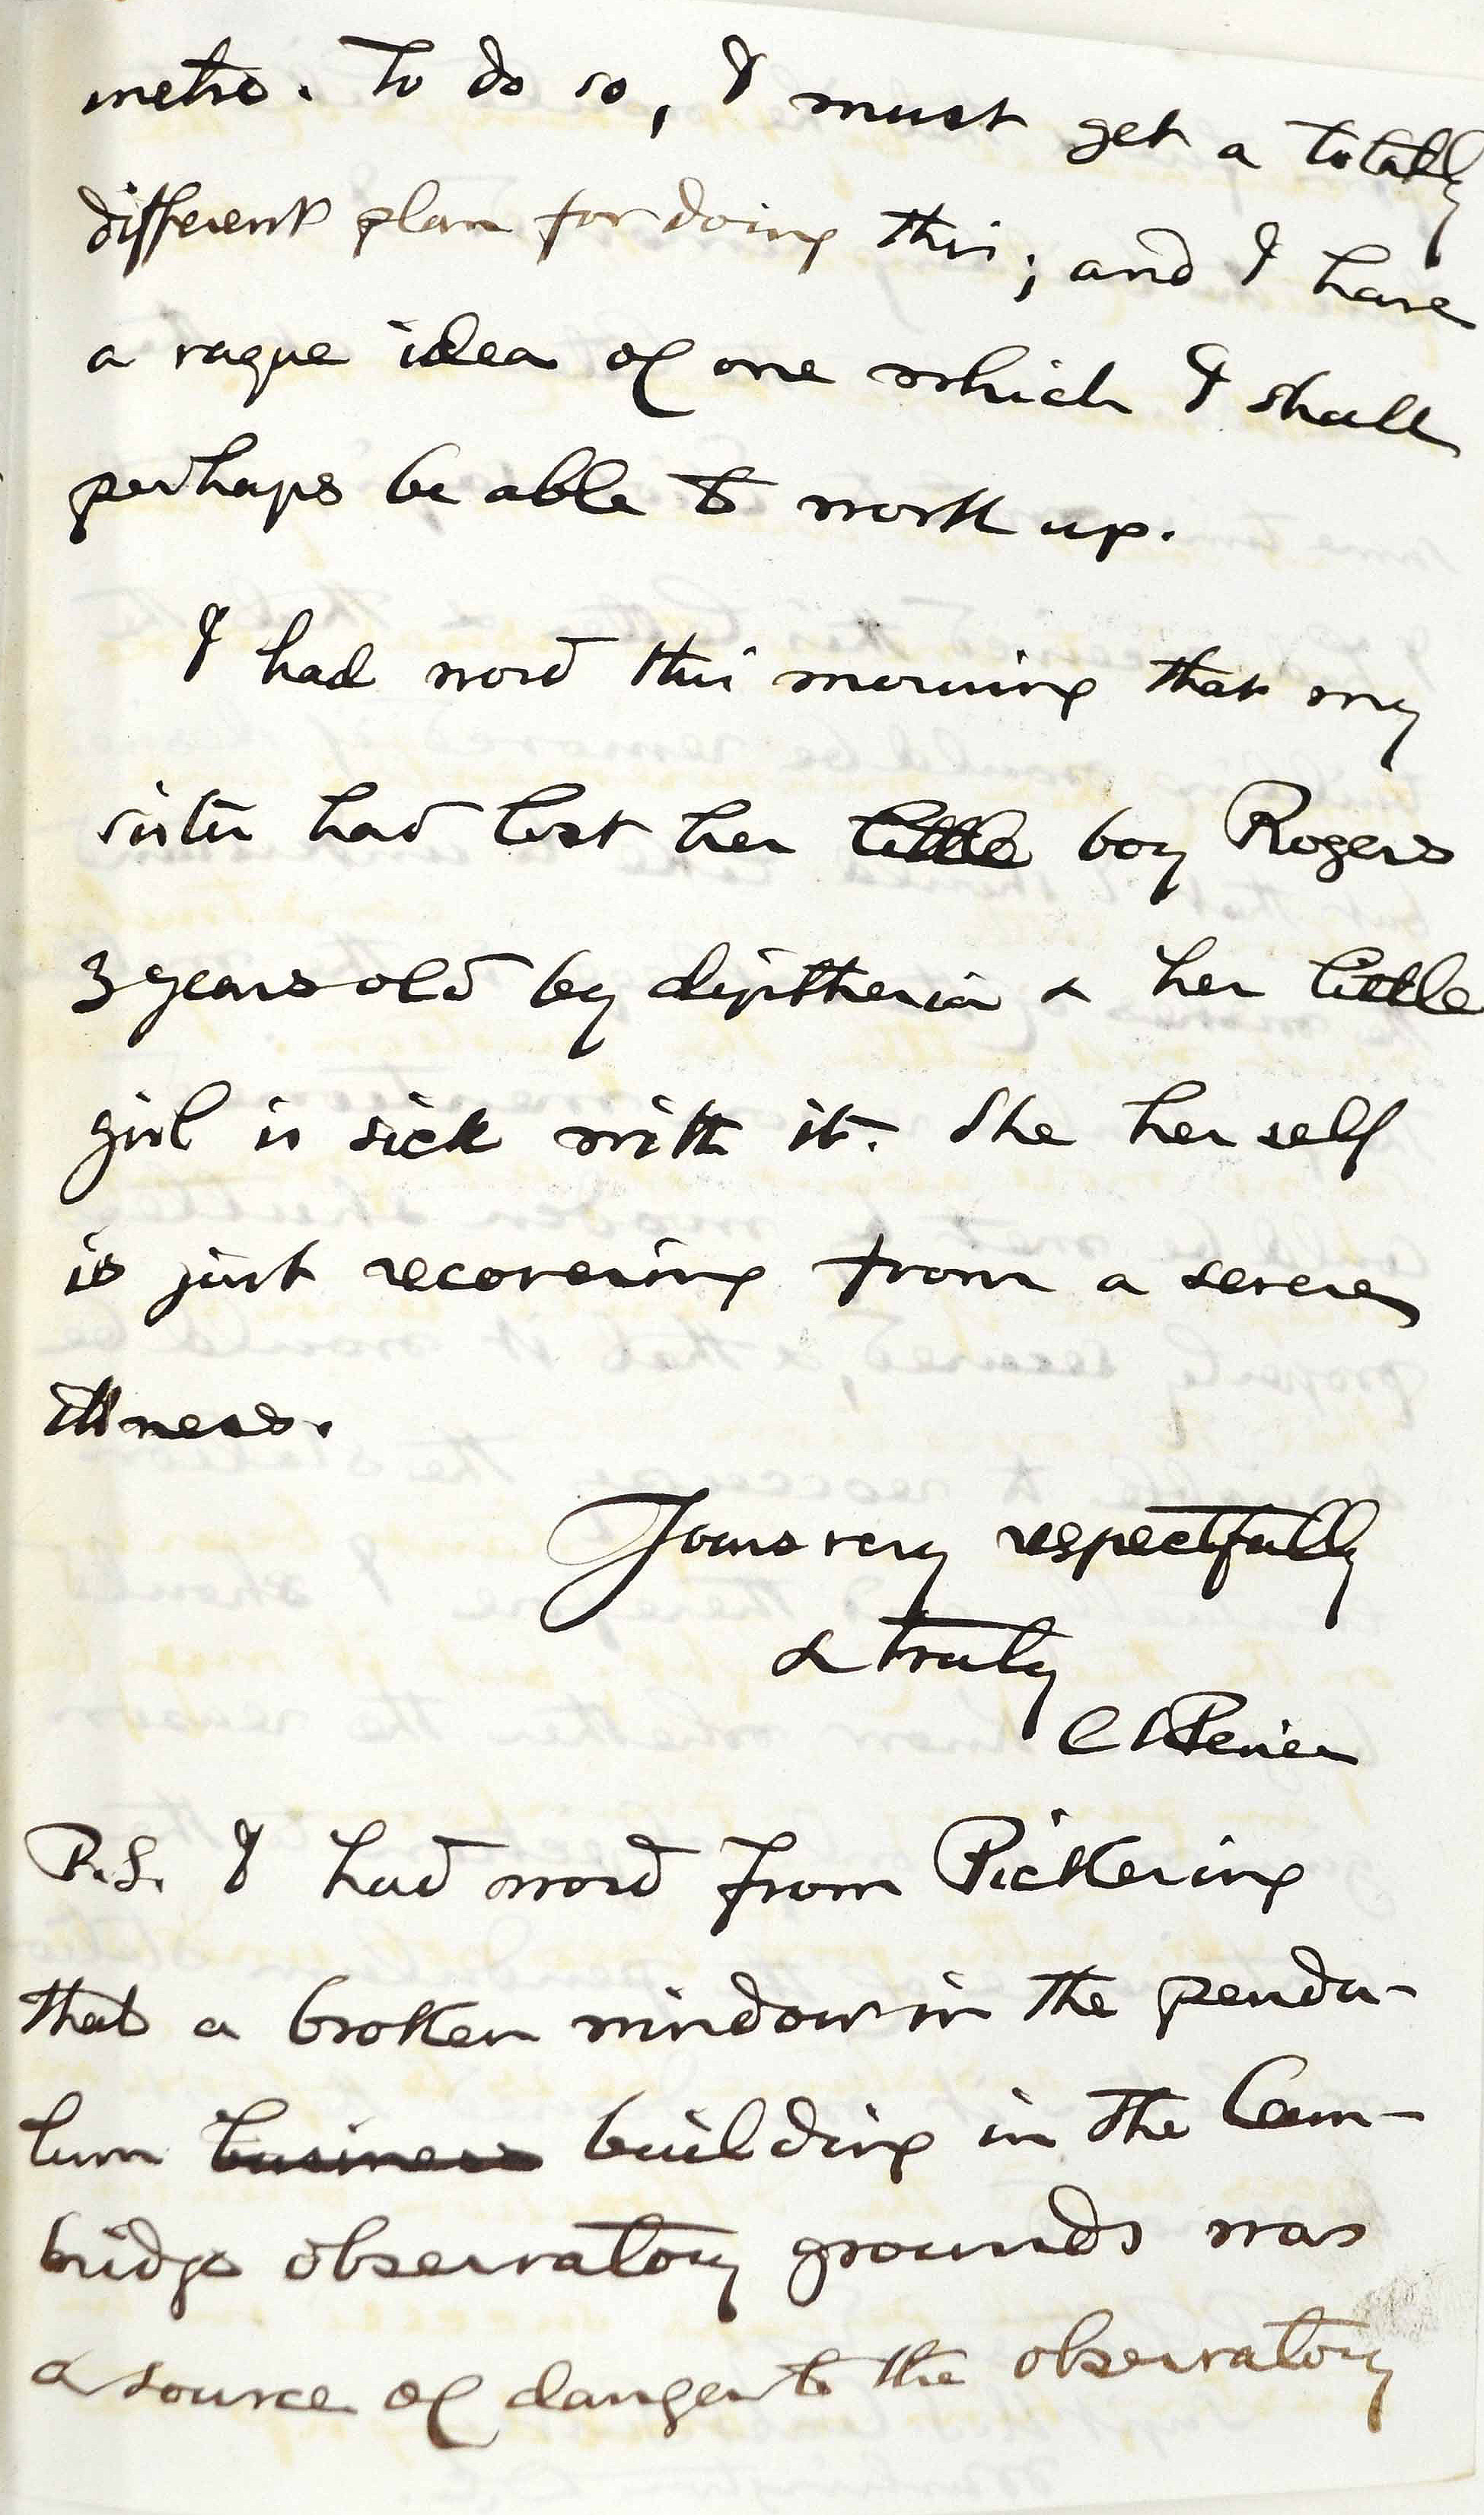 metre. To do so, I must get a totally
different plan for doing this; and I have
a vague idea of one which I shall
perhaps be able to work up.
I had word this morning that my
sister had lost her little boy Rogers
3 years old by diptheria & her little
girl is sick with it. She herself
is just recovering from a severe
illness.
Yours very respectfully
& truly
C S Peirce
P.S. I had word from Pickering
that a broken window in the pendu-
lum business building in the Cam-
bridge observatory grounds was
a source of danger to the observatory